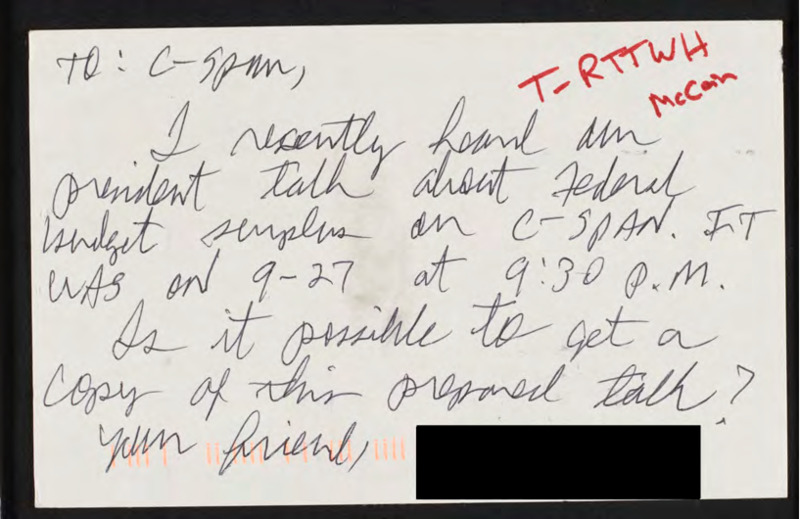 TO: C-Span,
T-RTTWH
McCain
I recently heard our
president talk about Federal
budget surplus on C-SPAN. IT
WAS on 9-27 at 9:30 P.M.
Is it possible to get a
copy of this prepared talk?
Your friend,